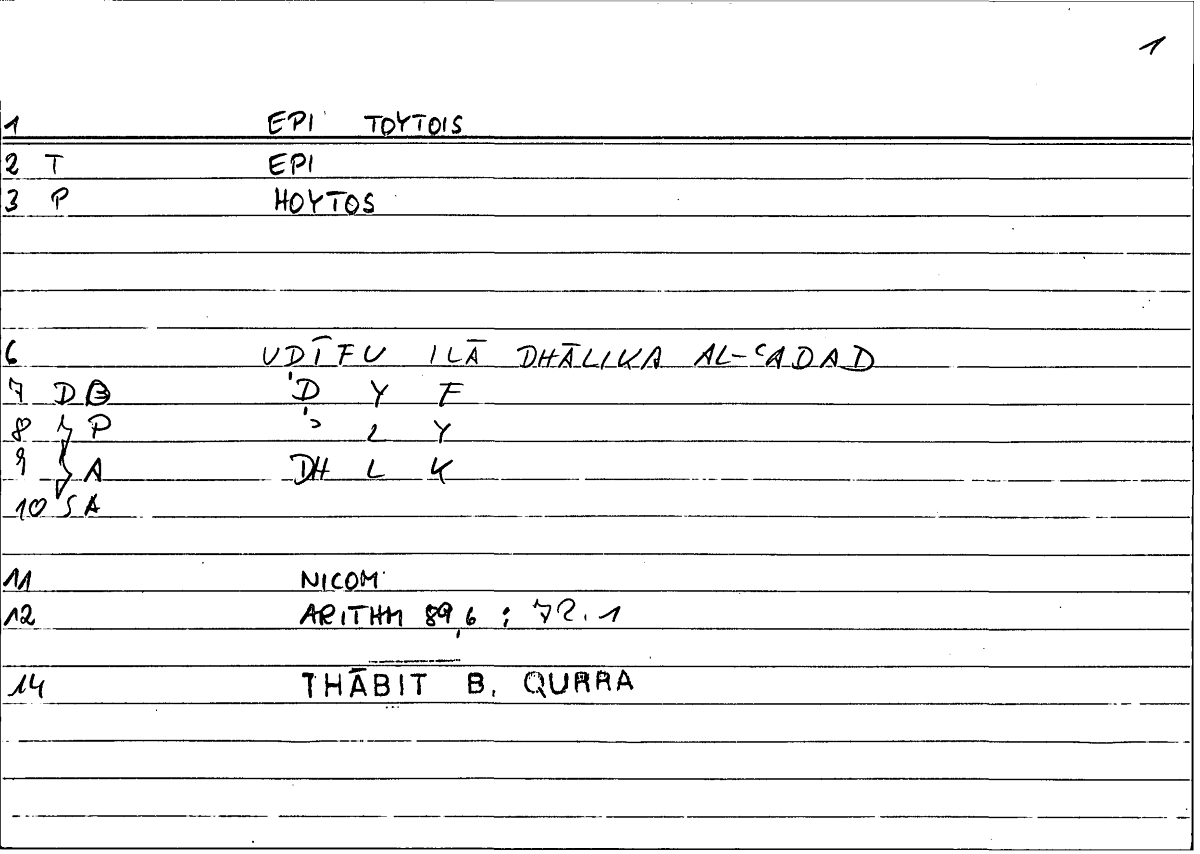 1
1 EPI TOYTOIS
2 T EPI
3 P HOYTOS
6 UDĪFU ILĀ DHĀLIKA AL-ʿADAD
7 DB Ḍ Y F
8 P ʾ L Y
9 A DH L K
10 SA
11 NICOM
12 ARITHM 89,6 ; 72.1
14 THĀBIT B. QURRA